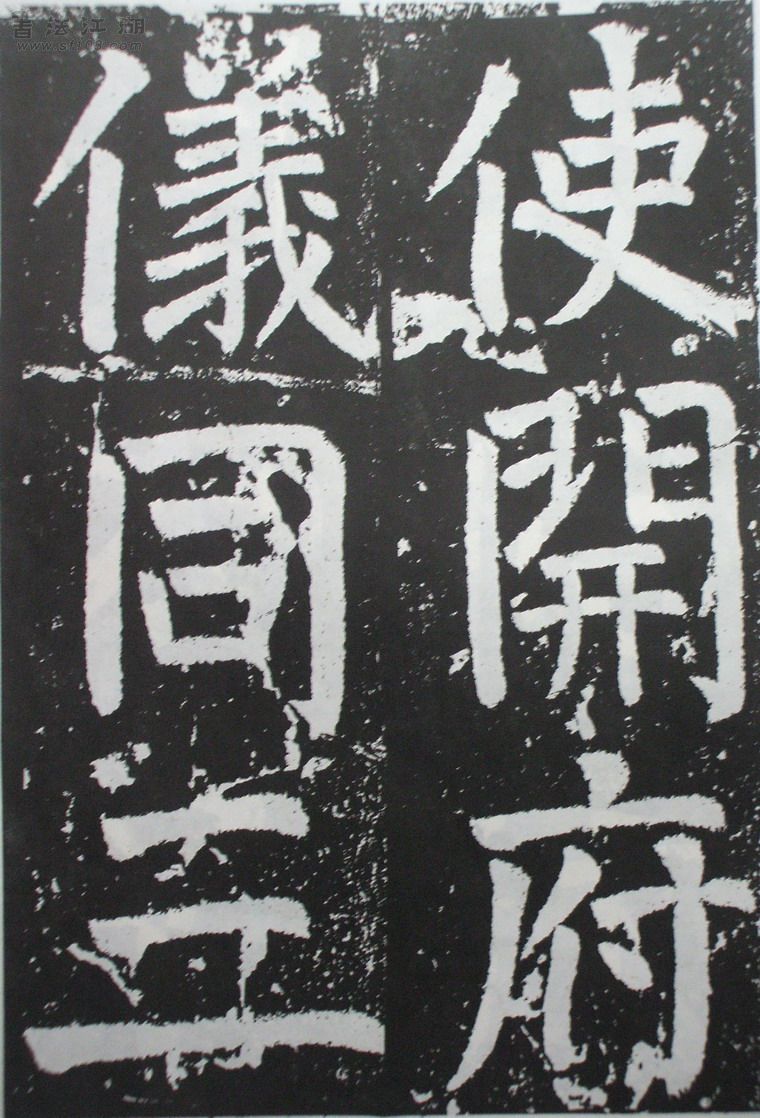 書法江湖
www.sf108.com
使開府
儀同三